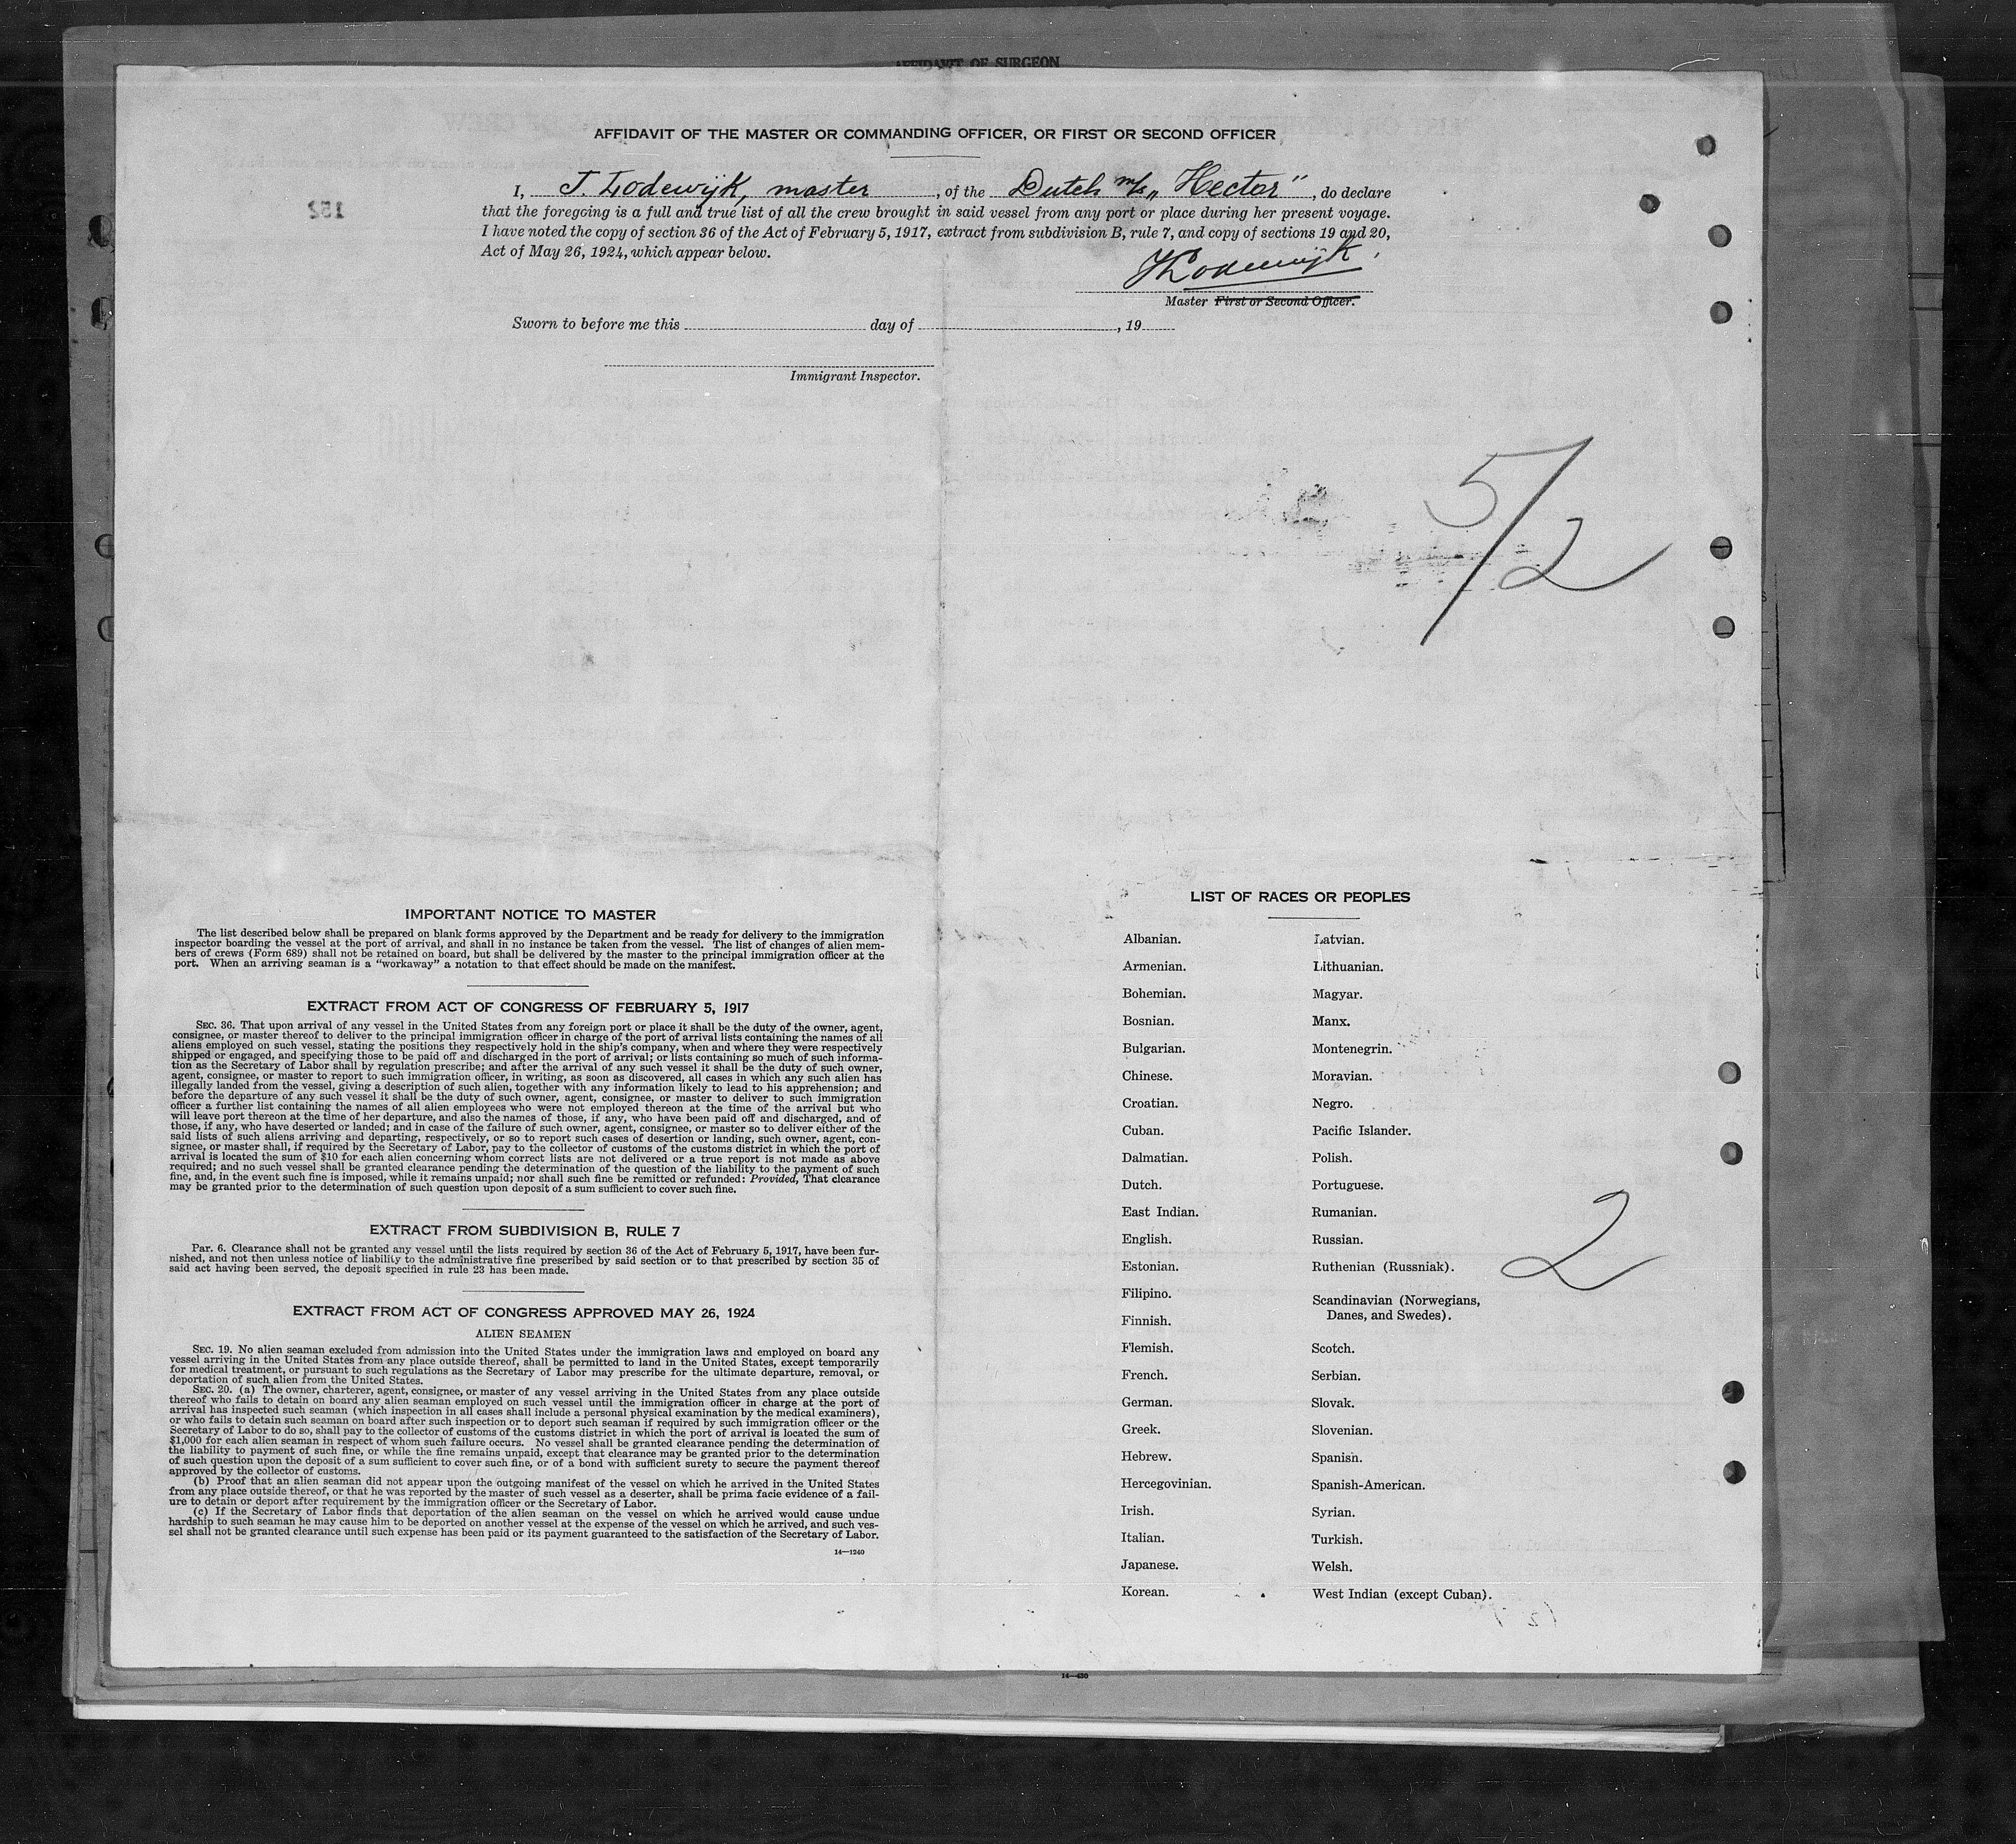 AFFIDAVIT OF SURGEON
AFFIDAVIT OF THE MASTER OR COMMANDING OFFICER, OR FIRST OR SECOND OFFICER
I, J. Lodewijk, master, of the Dutch m/s „Hector", do declare
that the foregoing is a full and true list of all the crew brought in said vessel from any port or place during her present voyage.
I have noted the copy of section 36 of the Act of February 5, 1917, extract from subdivision B, rule 7, and copy of sections 19 and 20,
Act of May 26, 1924, which appear below.
JLodewijk
Master First or Second Officer.
Sworn to before me this day of , 19
Immigrant Inspector.
152
5/2
IMPORTANT NOTICE TO MASTER
The list described below shall be prepared on blank forms approved by the Department and be ready for delivery to the immigration
inspector boarding the vessel at the port of arrival, and shall in no instance be taken from the vessel. The list of changes of alien mem-
bers of crews (Form 689) shall not be retained on board, but shall be delivered by the master to the principal immigration officer at the
port. When an arriving seaman is a "workaway" a notation to that effect should be made on the manifest.
EXTRACT FROM ACT OF CONGRESS OF FEBRUARY 5, 1917
SEC. 36. That upon arrival of any vessel in the United States from any foreign port or place it shall be the duty of the owner, agent,
consignee, or master thereof to deliver to the principal immigration officer in charge of the port of arrival lists containing the names of all
aliens employed on such vessel, stating the positions they respectively hold in the ship's company, when and where they were respectively
shipped or engaged, and specifying those to be paid off and discharged in the port of arrival; or lists containing so much of such informa-
tion as the Secretary of Labor shall by regulation prescribe; and after the arrival of any such vessel it shall be the duty of such owner,
agent, consignee, or master to report to such immigration officer, in writing, as soon as discovered, all cases in which any such alien has
illegally landed from the vessel, giving a description of such alien, together with any information likely to lead to his apprehension; and
before the departure of any such vessel it shall be the duty of such owner, agent, consignee, or master to deliver to such immigration
officer a further list containing the names of all alien employees who were not employed thereon at the time of the arrival but who
will leave port thereon at the time of her departure, and also the names of those, if any, who have been paid off and discharged, and of
those, if any, who have deserted or landed; and in case of the failure of such owner, agent, consignee, or master so to deliver either of the
said lists of such aliens arriving and departing, respectively, or so to report such cases of desertion or landing, such owner, agent, con-
signee, or master shall, if required by the Secretary of Labor, pay to the collector of customs of the customs district in which the port of
arrival is located the sum of $10 for each alien concerning whom correct lists are not delivered or a true report is not made as above
required; and no such vessel shall be granted clearance pending the determination of the question of the liability to the payment of such
fine, and, in the event such fine is imposed, while it remains unpaid; nor shall such fine be remitted or refunded: Provided, That clearance
may be granted prior to the determination of such question upon deposit of a sum sufficient to cover such fine.
EXTRACT FROM SUBDIVISION B, RULE 7
Par. 6. Clearance shall not be granted any vessel until the lists required by section 36 of the Act of February 5, 1917, have been fur-
nished, and not then unless notice of liability to the administrative fine prescribed by said section or to that prescribed by section 35 of
said act having been served, the deposit specified in rule 23 has been made.
EXTRACT FROM ACT OF CONGRESS APPROVED MAY 26, 1924
ALIEN SEAMEN
SEC. 19. No alien seaman excluded from admission into the United States under the immigration laws and employed on board any
vessel arriving in the United States from any place outside thereof, shall be permitted to land in the United States, except temporarily
for medical treatment, or pursuant to such regulations as the Secretary of Labor may prescribe for the ultimate departure, removal, or
deportation of such alien from the United States.
SEC. 20. (a) The owner, charterer, agent, consignee, or master of any vessel arriving in the United States from any place outside
thereof who fails to detain on board any alien seaman employed on such vessel until the immigration officer in charge at the port of
arrival has inspected such seaman (which inspection in all cases shall include a personal physical examination by the medical examiners),
or who fails to detain such seaman on board after such inspection or to deport such seaman if required by such immigration officer or the
Secretary of Labor to do so, shall pay to the collector of customs of the customs district in which the port of arrival is located the sum of
$1,000 for each alien seaman in respect of whom such failure occurs. No vessel shall be granted clearance pending the determination of
the liability to payment of such fine, or while the fine remains unpaid, except that clearance may be granted prior to the determination
of such question upon the deposit of a sum sufficient to cover such fine, or of a bond with sufficient surety to secure the payment thereof
approved by the collector of customs.
(b) Proof that an alien seaman did not appear upon the outgoing manifest of the vessel on which he arrived in the United States
from any place outside thereof, or that he was reported by the master of such vessel as a deserter, shall be prima facie evidence of a fail-
ure to detain or deport after requirement by the immigration officer or the Secretary of Labor.
(c) If the Secretary of Labor finds that deportation of the alien seaman on the vessel on which he arrived would cause undue
hardship to such seaman he may cause him to be deported on another vessel at the expense of the vessel on which he arrived, and such ves-
sel shall not be granted clearance until such expense has been paid or its payment guaranteed to the satisfaction of the Secretary of Labor.
14—1240
LIST OF RACES OR PEOPLES
Albanian.
Armenian.
Bohemian.
Bosnian.
Bulgarian.
Chinese.
Croatian.
Cuban.
Dalmatian.
Dutch.
East Indian.
English.
Estonian.
Filipino.
Finnish.
Flemish.
French.
German.
Greek.
Hebrew.
Hercegovinian.
Irish.
Italian.
Japanese.
Korean.
Latvian.
Lithuanian.
Magyar.
Manx.
Montenegrin.
Moravian.
Negro.
Pacific Islander.
Polish.
Portuguese.
Rumanian.
Russian.
Ruthenian (Russniak).
Scandinavian (Norwegians,
Danes, and Swedes).
Scotch.
Serbian.
Slovak.
Slovenian.
Spanish.
Spanish-American.
Syrian.
Turkish.
Welsh.
West Indian (except Cuban).
2
14—430